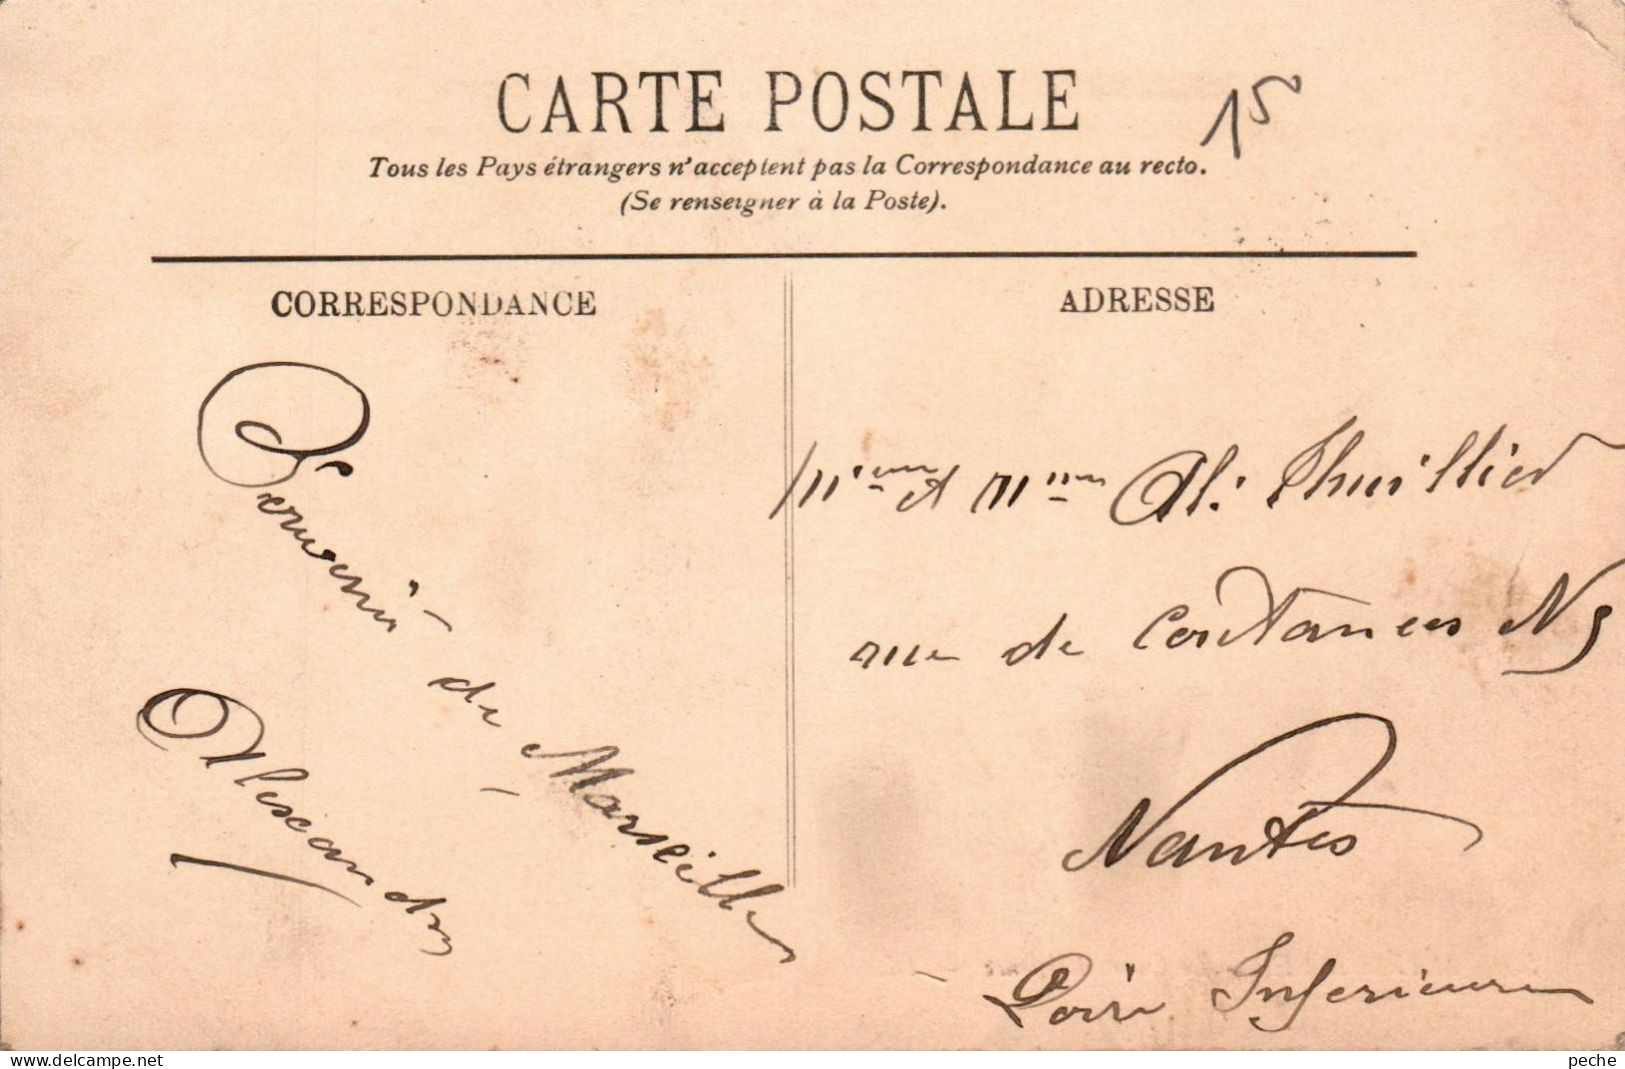 CARTE POSTALE
15
Tous les Pays étrangers n'acceptent pas la Correspondance au recto.
(Se renseigner à la Poste).
CORRESPONDANCE
Souvenir
de Marseille
Alexandre
ADRESSE
et Al: Thuillier
rue de Coutances N 5
Nantes
Loire Inferieure
www.delcampe.net
peche